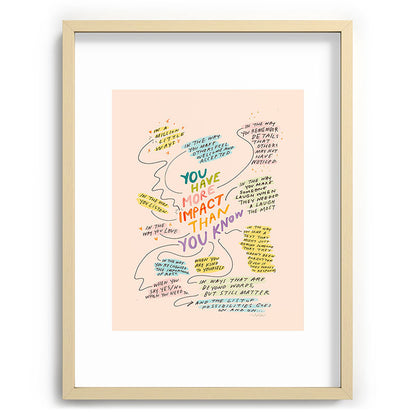 IN A
MILLION
LITTLE
WAYS
IN THE WAY
YOU MAKE
OTHERS FEEL
WELCOME AND
ACCEPTED
IN THE WAY
YOU REMEMBER
DETAILS
THAT
OTHERS
MAY NOT
HAVE
NOTICED
YOU
HAVE
MORE
IMPACT
THAN
YOU KNOW
IN THE WAY
YOU MAKE
SOMEONE
LAUGH WHEN
THEY NEEDED
A LAUGH
THE MOST
IN THE WAY
YOU LISTEN
IN THE
WAY YOU LOVE
IN THE WAY
YOU SEND A
TEXT THAT
IN THE WAY
YOU RECOGNIZE
THE IMPORTANCE
OF REST
WHEN YOU
ARE KIND
TO YOURSELF
WHEN YOU
SAY YES/NO
WHEN YOU NEED TO
IN WAYS THAT ARE
BEYOND WORDS,
BUT STILL MATTER
AND THE LIST OF
POSSIBILITIES GOES
ON AND ON...